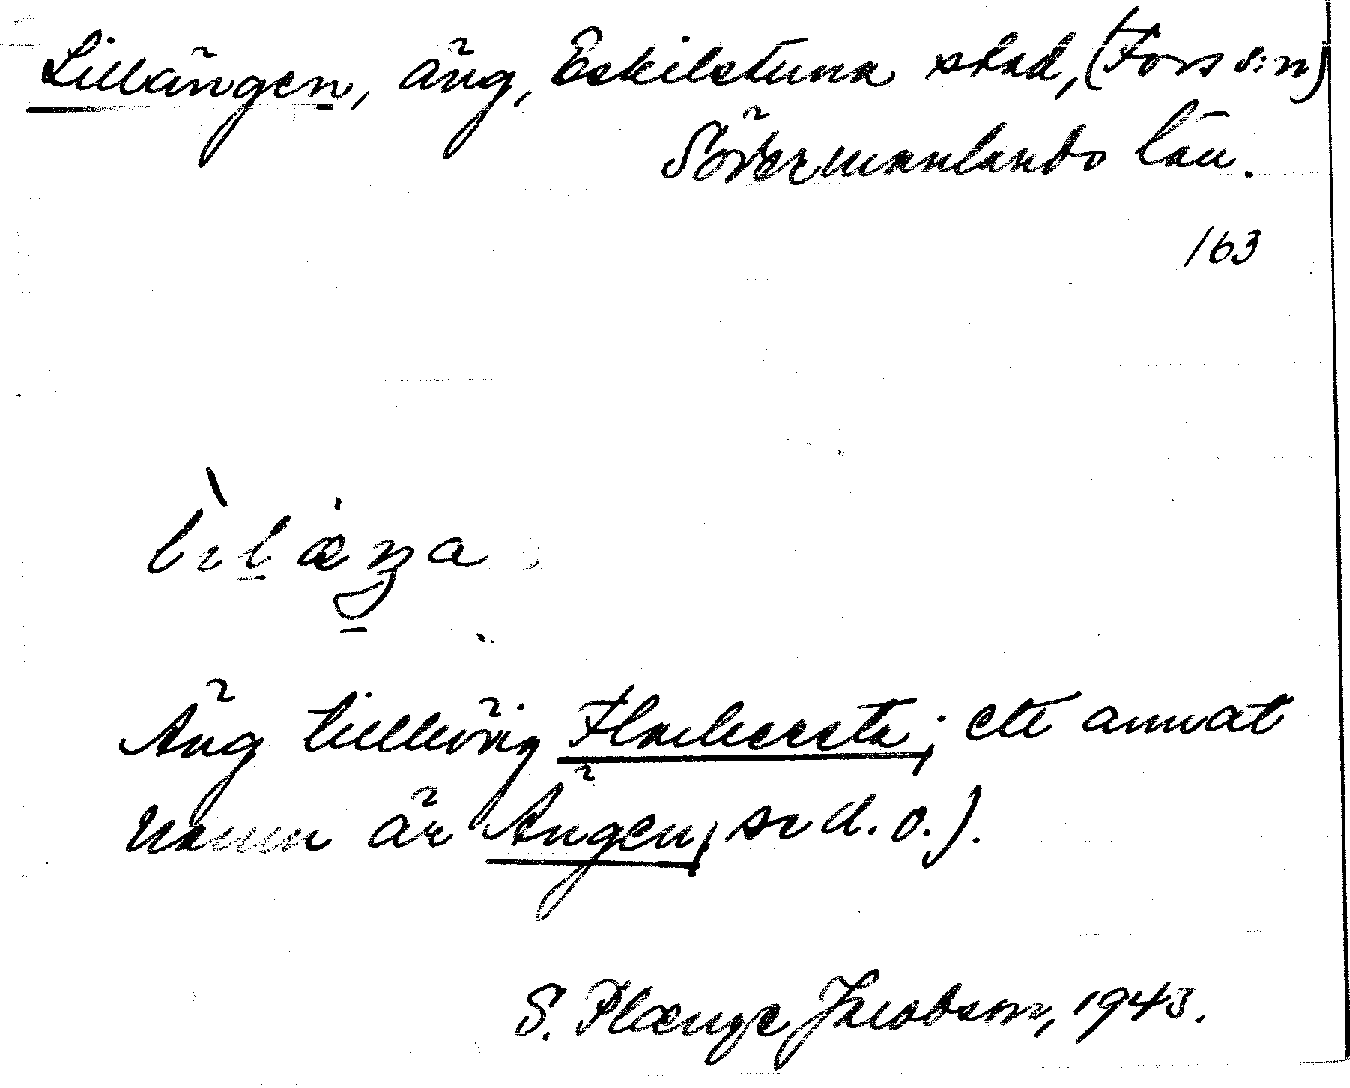 Lillängen, äng, Eskilstuna stad, (Fors s:n)
Södermanlands län.
163
Äng tillhörig; ett annat
namn är Ängen, se d. o.).
S. Plænge Jacobson, 1943.